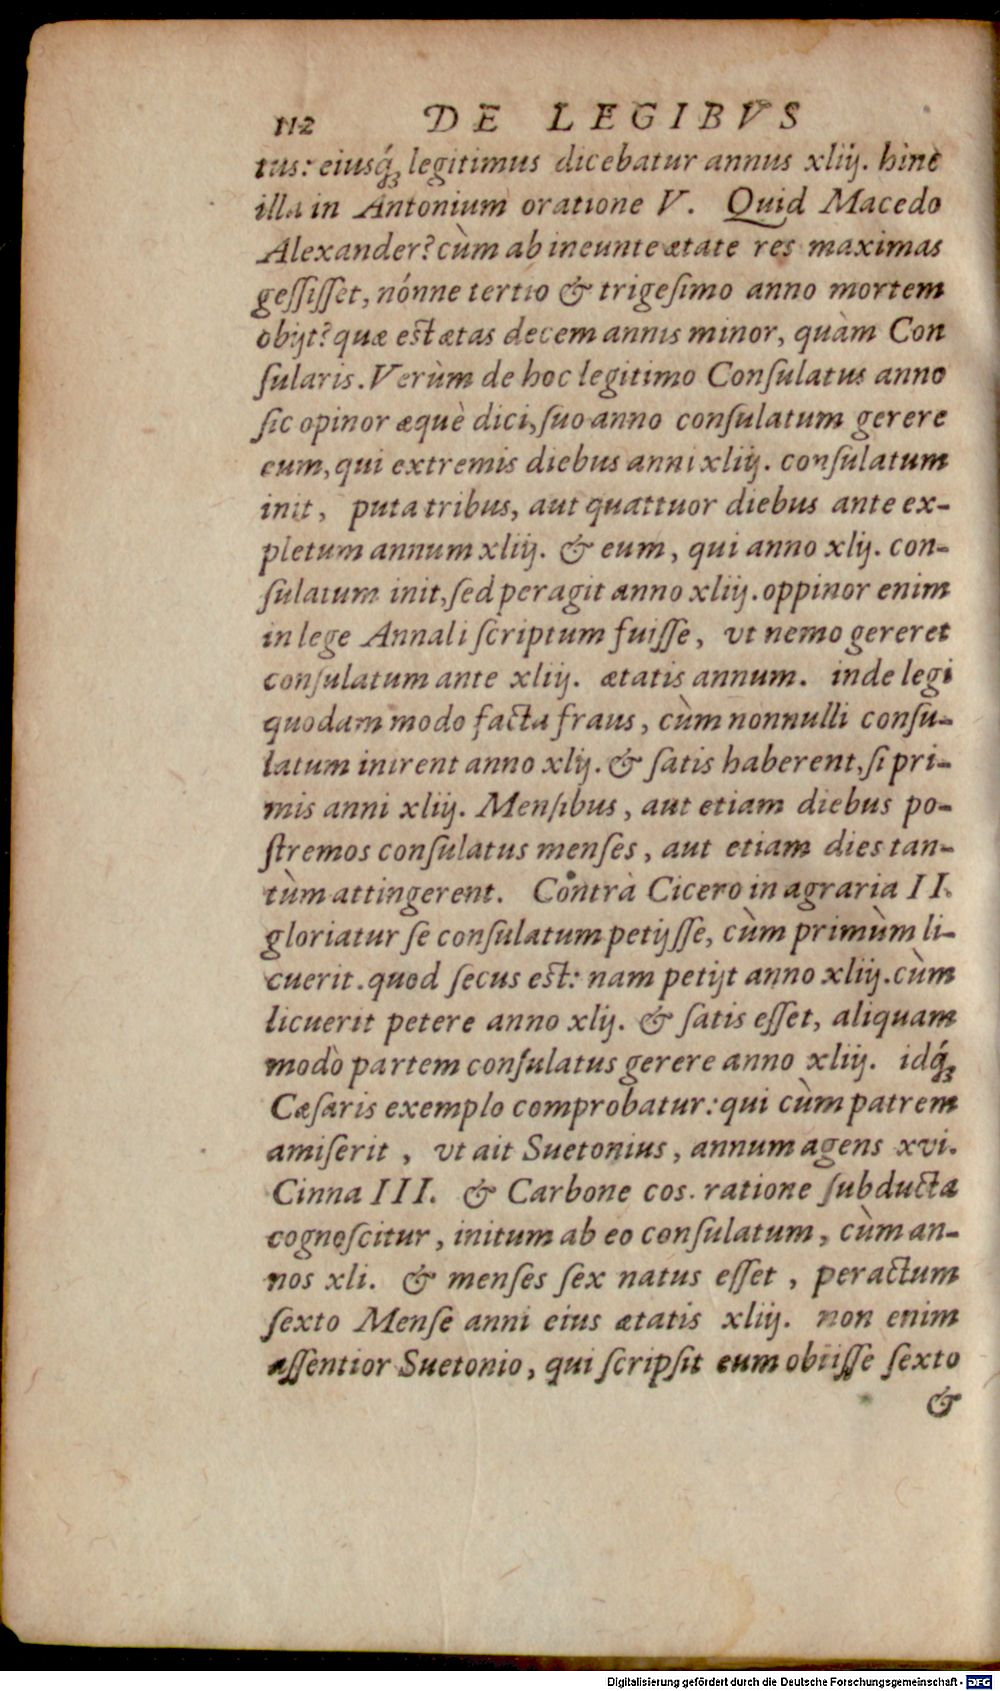 112 DE LEGIBVS
tus: eiusq́; legitimus dicebatur annus xliij. hinc
illa in Antonium oratione V. Quid Macedo
Alexander? cùm ab ineunte ætate res maximas
geſſiſſet, nónne tertio & trigeſimo anno mortem
obijt? quæ est ætas decem annis minor, quàm Con
ſularis. Verùm de hoc legitimo Conſulatus anno
ſic opinor æquè dici, ſuo anno conſulatum gerere
eum, qui extremis diebus anni xliij. conſulatum
init, puta tribus, aut quattuor diebus ante ex-
pletum annum xliij. & eum, qui anno xlij. con-
ſulatum init, ſed peragit anno xliij. oppinor enim
in lege Annali ſcriptum fuiſſe, vt nemo gereret
conſulatum ante xliij. ætatis annum. inde legi
quodam modo facta fraus, cùm nonnulli conſu-
latum inirent anno xlij. & ſatis haberent, ſi pri-
mis anni xliij. Menſibus, aut etiam diebus po-
ſtremos conſulatus menſes, aut etiam dies tan-
tùm attingerent. Contrà Cicero in agraria II.
gloriatur ſe conſulatum petijſſe, cùm primùm li-
cuerit. quod ſecus est: nam petijt anno xliij. cùm
licuerit petere anno xlij. & ſatis eſſet, aliquam
modò partem conſulatus gerere anno xliij. idq́;
Cæſaris exemplo comprobatur: qui cùm patrem
amiſerit, vt ait Suetonius, annum agens xvi.
Cinna III. & Carbone cos. ratione ſubducta
cognoſcitur, initum ab eo conſulatum, cùm an-
nos xli. & menſes ſex natus eſſet, peractum
ſexto Menſe anni eius ætatis xliij. non enim
aſſentior Suetonio, qui ſcripſit eum obiiſſe ſexto
&
Digitalisierung gefördert durch die Deutsche Forschungsgemeinschaft - DFG